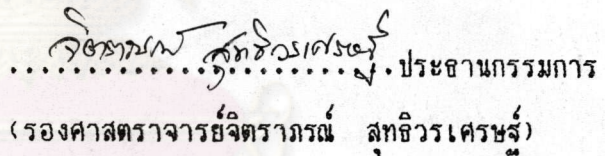 จิตราภรณ์ สุทธิวรเศรษฐ์ ประธานกรรมการ
(รองศาสตราจารย์จิตราภรณ์ สุทธิวรเศรษฐ์)